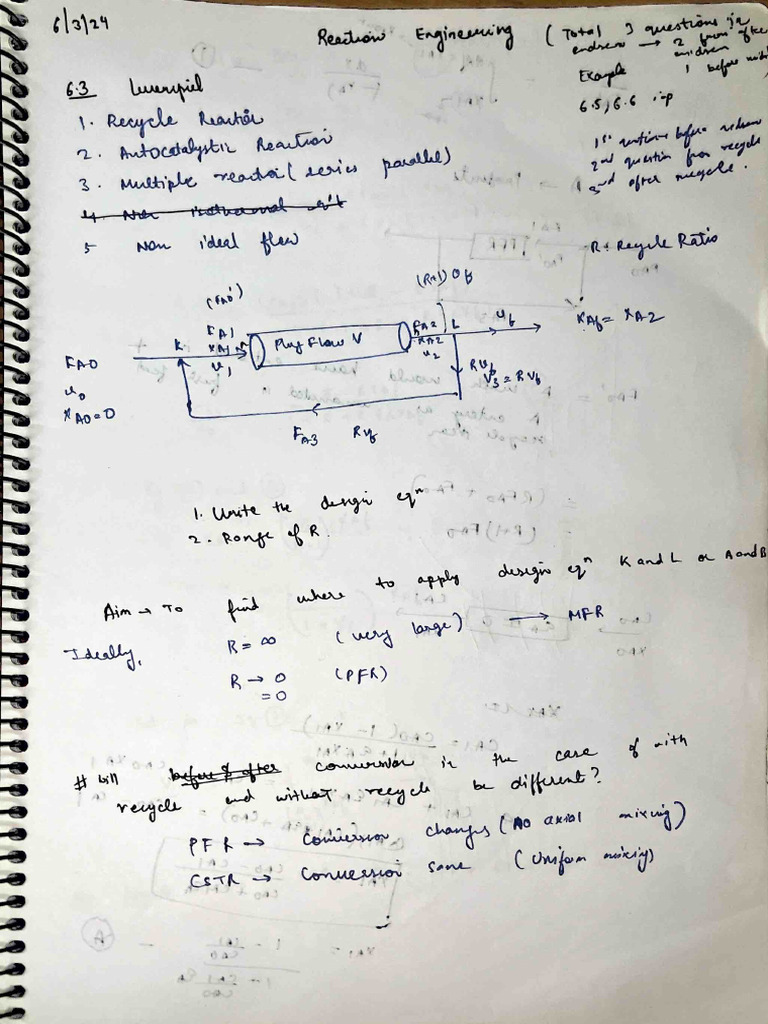 6/3/24
Reaction Engineering (Total 3 questions in
endsem → 2 from after
midsem
1 before mid
Example
6.5, 6.6 imp
1st question before midsem
2nd question from recycle
3rd after recycle.
6.3 Levenspiel
1. Recycle Reactor
2. Autocatalystic Reaction
3. Multiple reactor (series parallel)
4. Non isothermal
5 Non ideal flow
R: Recycle Ratio
(FA0')
(R+1)
K FA1 Plug Flow V FA2 L υf XAf = XA2
XA1 XA2
FA0 υ1 υ2 Rυf
υ0 V3 = Rυf
XA0=0
FA3 Rυf
1. Write the design eqn
2. Range of R.
Aim → To find where to apply design eqn K and L or A and B
Ideally, R = ∞ (very large) → MFR
R → 0 (PFR)
= 0
# Will before & after conversion in the case of with
recycle and without recycle be different?
PFR → Conversion changes (No axial mixing)
CSTR → Conversion same (Uniform mixing)